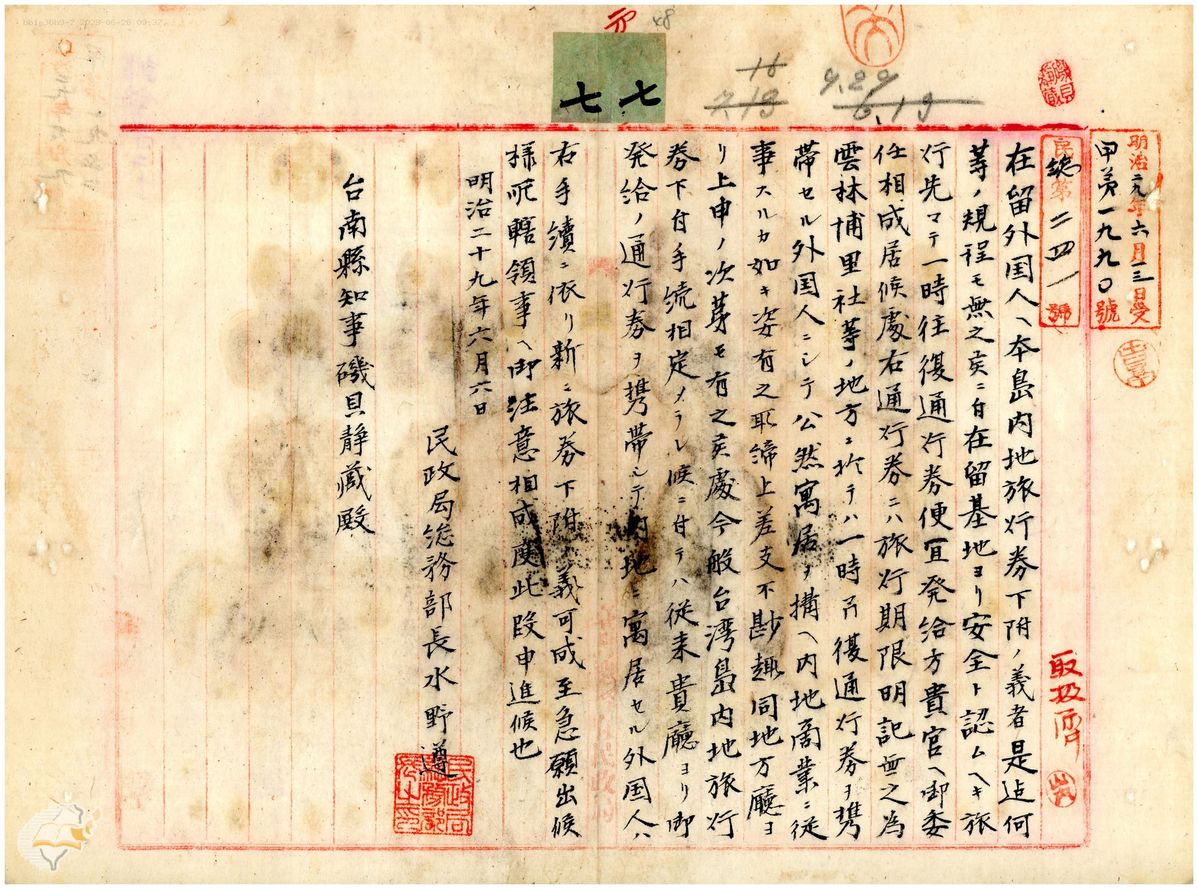 明治二九年六月十三日受
甲第一九九〇號
民總第二四一號
在留外国人ヘ本島内地旅行券下附ノ義者是迠何
等ノ規程モ無之矣ニ付在留基地ヨリ安全ト認ムヘキ旅
行先マテ一時往復通行券便冝発給方貴官ヘ御委
任相成居候處右通行券ニハ旅行期限明記無之為
雲林埔里社等ノ地方ニ於テハ一時往復通行券ヲ携
帯セル外国人ニシテ公然寓居ヲ搆ヘ内地商業ニ従
事スルカ如キ姿有之取締上差支不尠趣同地方廳ヨ
リ上申ノ次第モ有之矣處今般台湾島内地旅行
券下付手続相定メラレ候ニ付テハ従来貴廳ヨリ御
発給ノ通行券ヲ携帯シテ内地ニ寓居セル外国人ハ
右手續ニ依リ新ニ旅券下附ノ義可成至急願出候
様所轄領事ヘ御注意相成度此段申進候也
明治二十九年六月六日
民政局総務部長水野遵
台南縣知事磯貝静藏殿
取扱済
七七
16
7.19
9.29
6.19